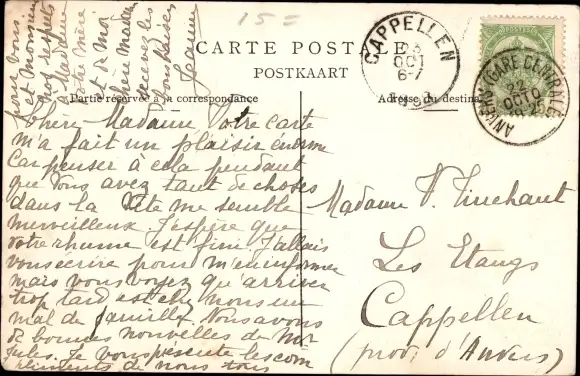 15 =
CARTE POSTALE
POSTKAART
Partie réservée à la correspondance
Adresse du destina
CAPPELLEN
OCT
6-7
ANVERS (GARE CENTRALE
22
OCTO
Chère Madame Votre carte
m'a fait un plaisir énorme
Car penser à cela pendant
que vous avez tant de choses
dans la tête me semble
merveilleux. J'espère que
votre rhume est fini J'allais
vous écrire pour m'en informer
mais vous voyez qu'arriver
trop tard est che mon
mal de famille. Nous avons
de bonnes nouvelles de Mr
Jules. Je vous présente les com
pliments de nous tous
pour vous
et Monsieur
mes respects
à Madame
votre mère
et de moi
chère Madame
recevez les
bons baisers
Jeanne
Madame V.
Les Etangs
Cappellen
(prov. d'Anvers)